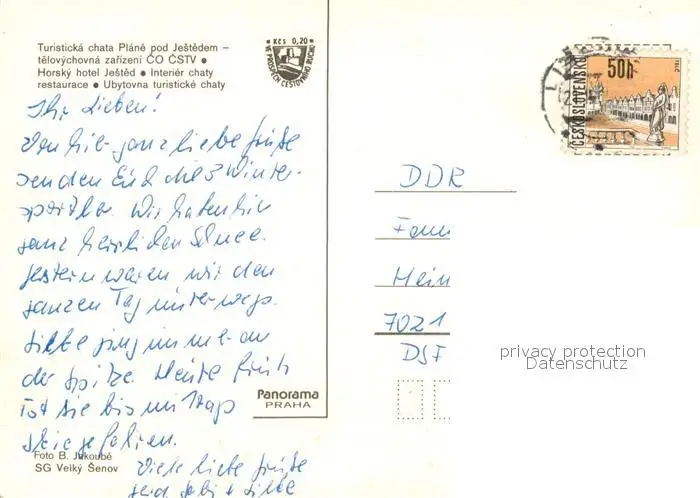 Turistická chata Pláně pod Ještědem –
tělovýchovná zařízení ČO ČSTV •
Horský hotel Ještěd • Interiér chaty
restaurace • Ubytovna turistické chaty
Kčs 0,20
VE PROSPĚCH CESTOVNÍHO RUCHU
Ihr Lieben!
Von hier ganz liebe Grüße
senden Euch die 3 Winter-
sportler. Wir haben hier
ganz herrlichen Schnee.
Gestern waren wir den
ganzen Tag unterwegs.
Silke ging immer an
der Spitze. Heute früh
ist sie bis mittags
Ski gefahren.
Viele liebe Grüße
Silke
Foto B. Jakoubě
SG Velký Šenov
Panorama
PRAHA
ČESKOSLOVENSKO
50h
TELČ
DDR
Fami
Hein
7021
DSF
privacy protection
Datenschutz